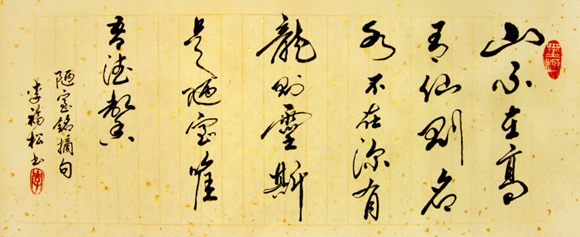 山不在高
有仙則名
水不在深有
龍則靈斯
是陋室唯
吾德馨
陋室銘摘句
李福松书